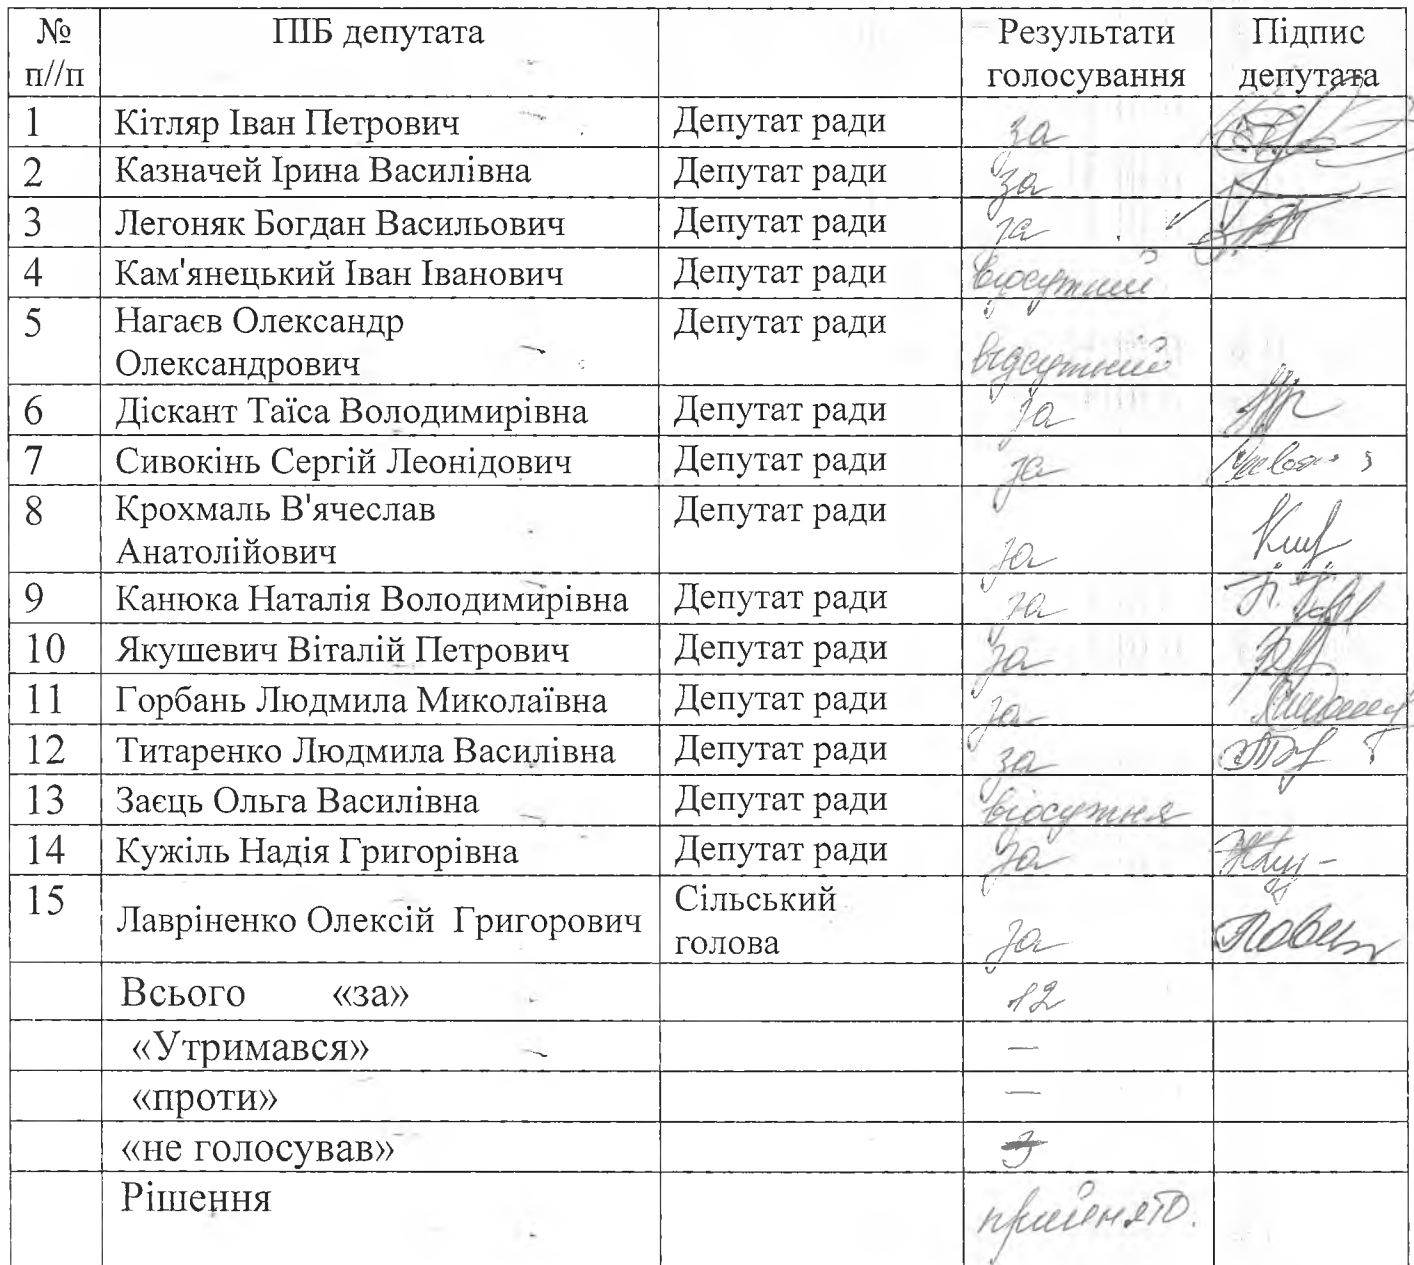 № п//п ПІБ депутата Результати голосування Підпис депутата
1 Кітляр Іван Петрович Депутат ради за
2 Казначей Ірина Василівна Депутат ради за
3 Легоняк Богдан Васильович Депутат ради за
4 Кам'янецький Іван Іванович Депутат ради відсутний
5 Нагаєв Олександр Олександрович Депутат ради відсутний
6 Діскант Таїса Володимирівна Депутат ради за
7 Сивокінь Сергій Леонідович Депутат ради за
8 Крохмаль В'ячеслав Анатолійович Депутат ради за
9 Канюка Наталія Володимирівна Депутат ради за
10 Якушевич Віталій Петрович Депутат ради за
11 Горбань Людмила Миколаївна Депутат ради за
12 Титаренко Людмила Василівна Депутат ради за
13 Заєць Ольга Василівна Депутат ради відсутня
14 Кужіль Надія Григорівна Депутат ради за
15 Лавріненко Олексій Григорович Сільський голова за
Всього «за» 12
«Утримався» —
«проти» —
«не голосував»
Рішення прийнято.